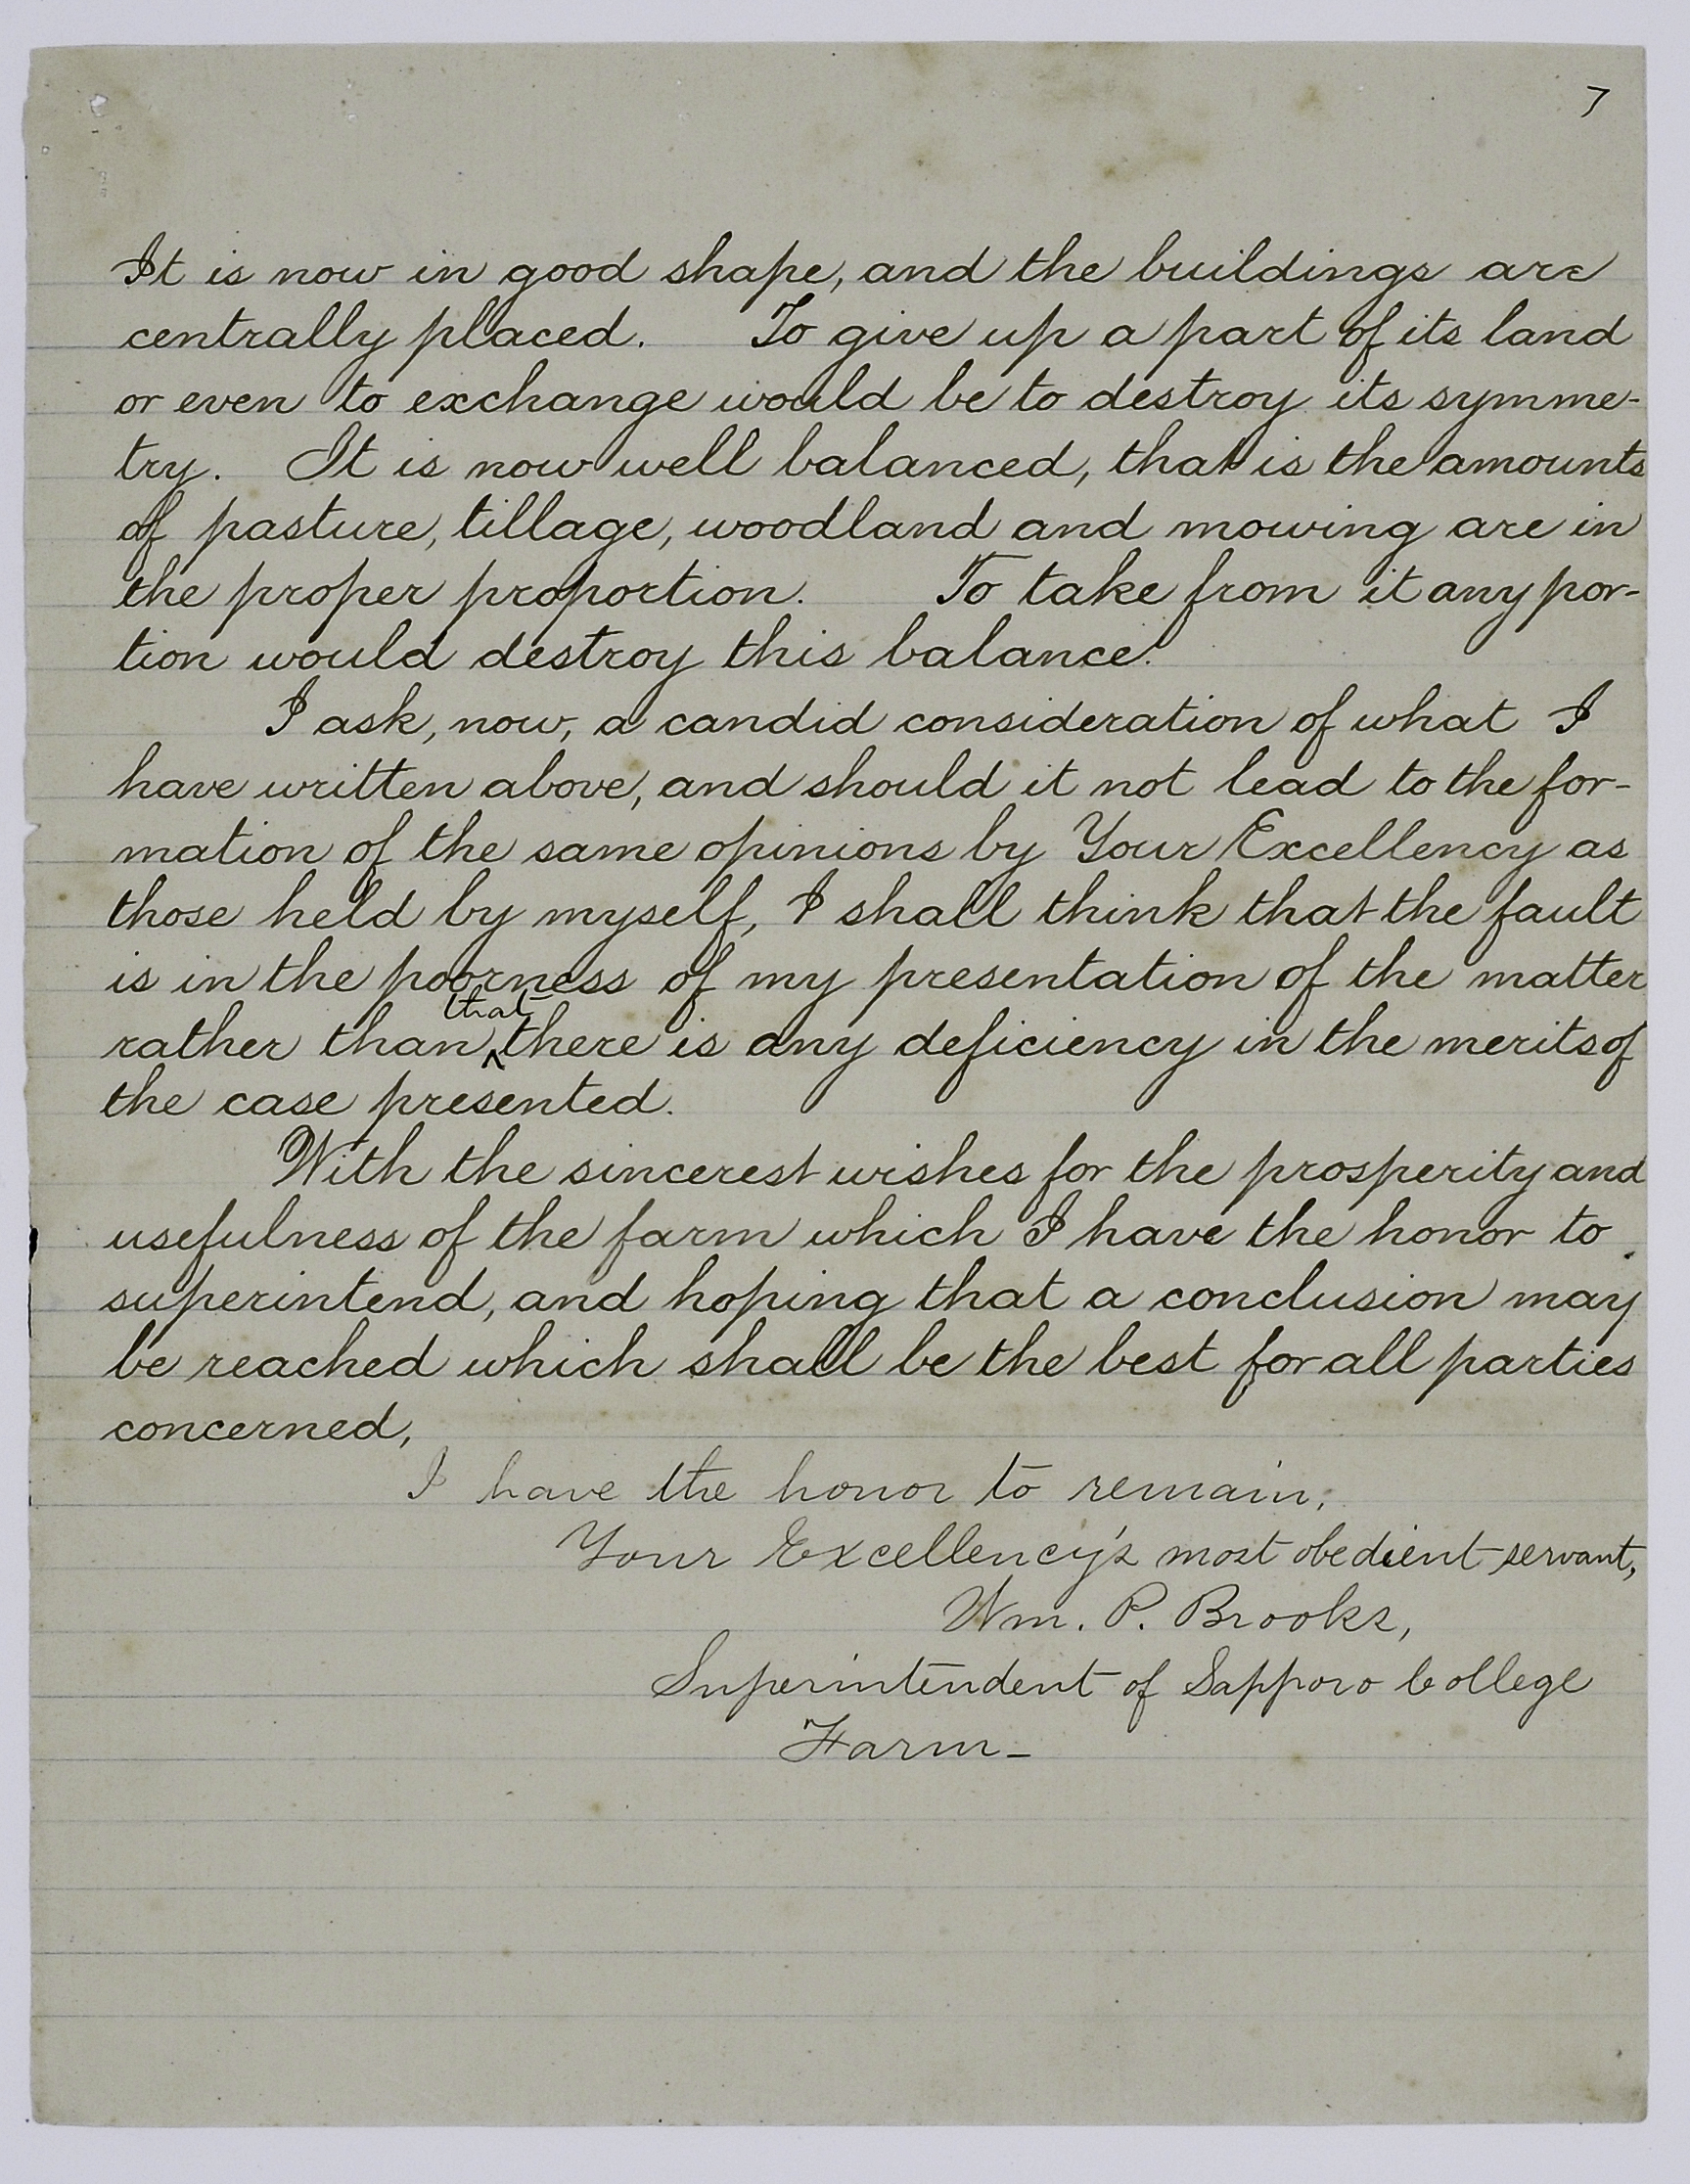 7
It is now in good shape, and the buildings are
centrally placed. To give up a part of its land
or even to exchange would be to destroy its symme-
try. It is now well balanced, that is the amounts
of pasture, tillage, woodland and mowing are in
the proper proportion. To take from it any por-
tion would destroy this balance.
I ask, now, a candid consideration of what I
have written above, and should it not lead to the for-
mation of the same opinions by Your Excellency as
those held by myself, I shall think that the fault
is in the poorness of my presentation of the matter
that
rather than ^ there is any deficiency in the merits of
the case presented.
With the sincerest wishes for the prosperity and
usefulness of the farm which I have the honor to
superintend, and hoping that a conclusion may
be reached which shall be the best for all parties
concerned,
I have the honor to remain,
Your Excellency's most obedient servant,
Wm. P. Brooks,
Superintendent of Sapporo College
Farm_